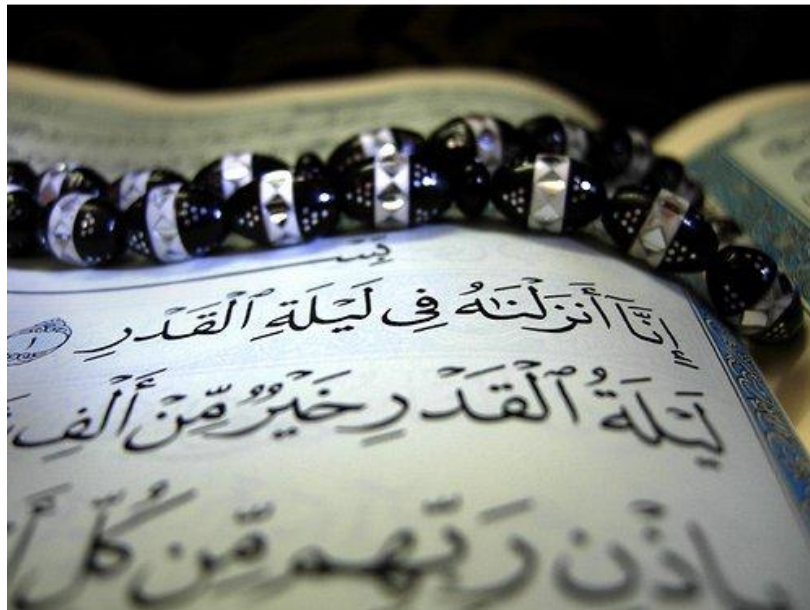 بِسْـ
إِنَّآ أَنزَلْنَـٰهُ فِى لَيْلَةِ ٱلْقَدْرِ ١
لَيْلَةُ ٱلْقَدْرِ خَيْرٌ مِّنْ أَلْفِ
بِإِذْنِ رَبِّهِم مِّن كُلِّ